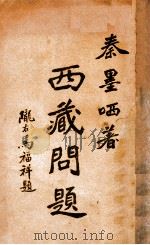 秦墨哂著
西藏問題
隴右馬福祥題
www.mtoou.info